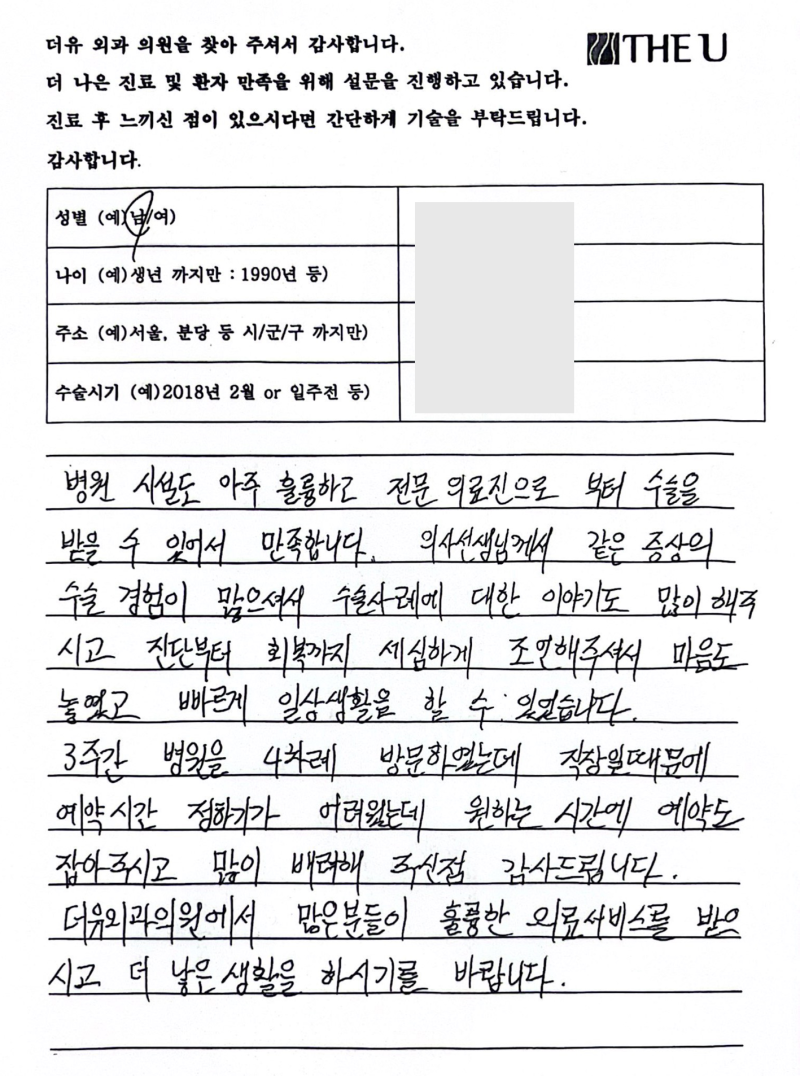 더유 외과 의원을 찾아 주셔서 감사합니다.
THE U
더 나은 진료 및 환자 만족을 위해 설문을 진행하고 있습니다.
진료 후 느끼신 점이 있으시다면 간단하게 기술을 부탁드립니다.
감사합니다.
성별 (예)남/여)
나이 (예)생년 까지만 : 1990년 등)
주소 (예)서울, 분당 등 시/군/구 까지만)
수술시기 (예)2018년 2월 or 일주전 등)
병원 시설도 아주 훌륭하고 전문 의료진으로 부터 수술을
받을 수 있어서 만족합니다. 의사선생님께서 같은 증상의
수술 경험이 많으셔서 수술사례에 대한 이야기도 많이 해주
시고 진단부터 회복까지 세심하게 조언해주셔서 마음도
놓였고 빠르게 일상생활을 할 수 있었습니다.
3주간 병원을 4차례 방문하였는데 직장일때문에
예약시간 정하기가 어려웠는데 원하는 시간에 예약도
잡아주시고 많이 배려해 주신점 감사드립니다.
더유외과의원에서 많은분들이 훌륭한 의료서비스를 받으
시고 더 낳은 생활을 하시기를 바랍니다.